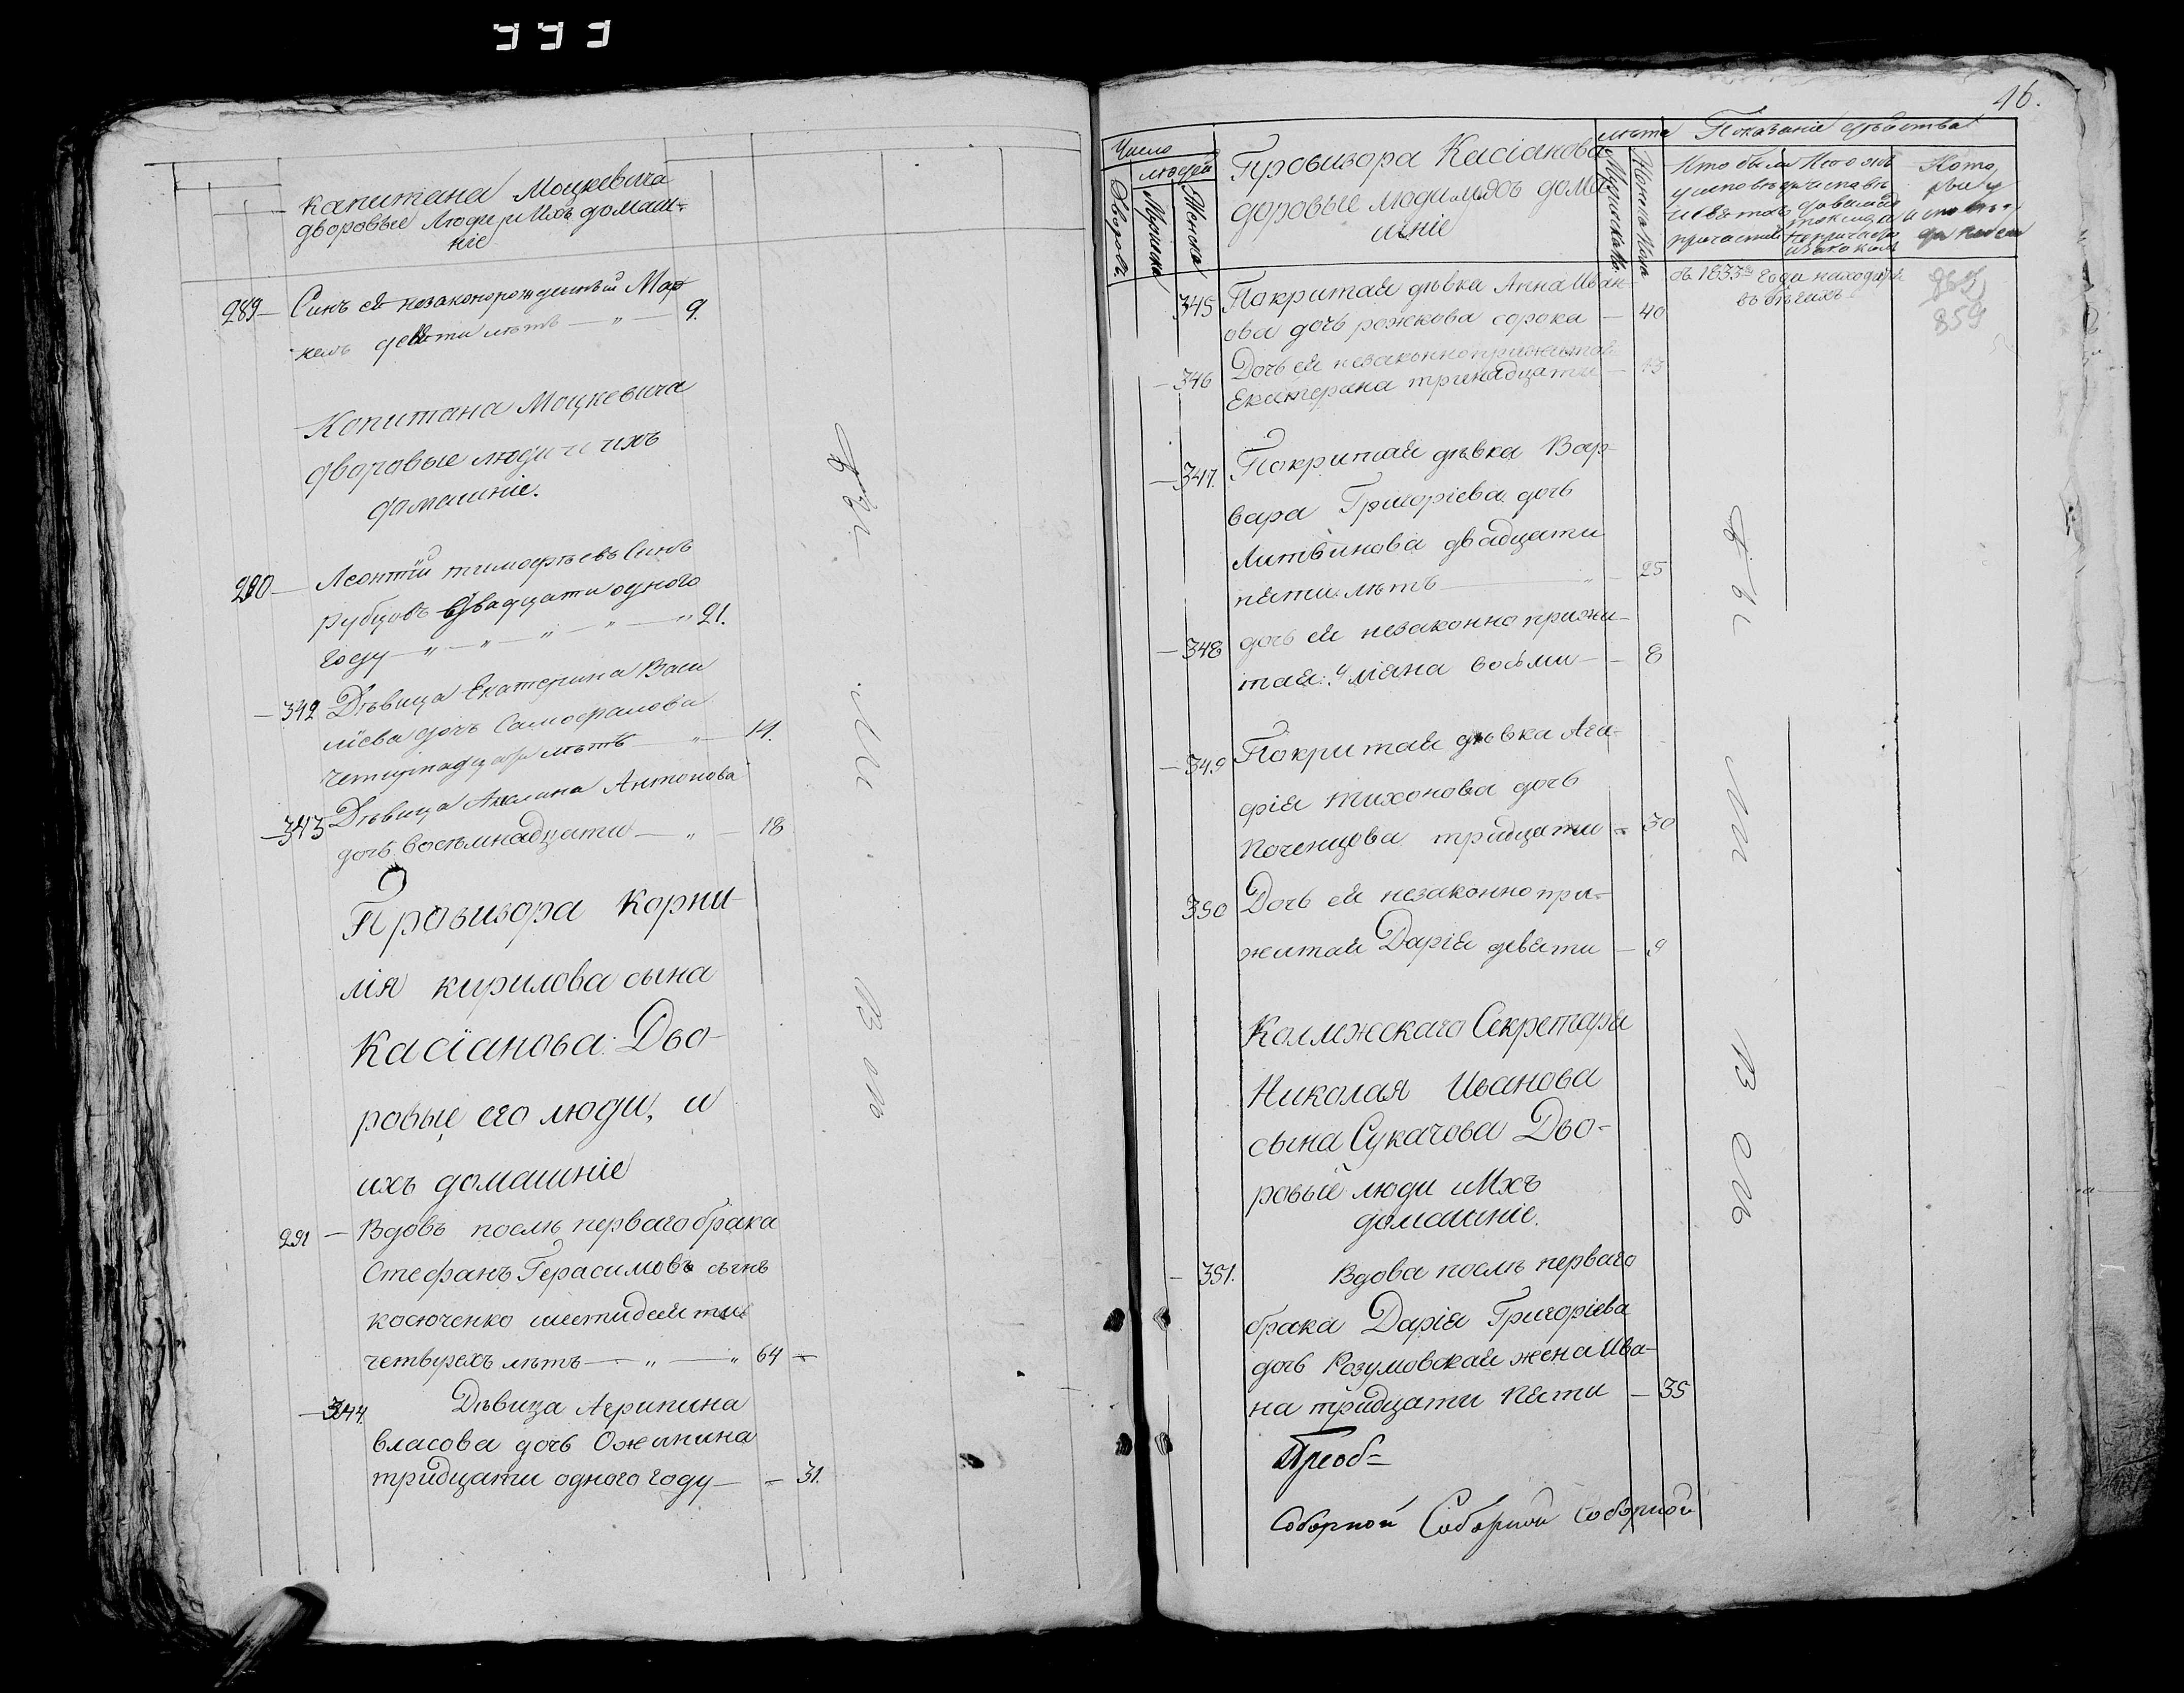 капитана Моцкевича
дворовые Люди и Ихъ домаш-
ніе
289 — Синъ ей незаконорожденный Мар
девяти лѣтъ — " — 9.
Копитана Моцкевича
дворовые люди и ихъ
домашніе.
290 — Леонтій тимофѣевъ Синъ
рубцовъ двадцати одного
году — " — " — " — " — " 21.
— 342 Дѣвица Екатерина Васи
ліева дочь Самофалова
лѣтъ — " — 14.
— 343 Дѣвица Акилина Антонова
дочь восемнадцати — " — 18
Провизора Корни-
лія кирилова сына
Касіанова: Дво-
ровые его люди, и
ихъ домашніе
291 — Вдовъ послѣ перваго брака
Стефанъ Герасимовъ сынъ
косюченко
четырехъ лѣтъ — " — " 64 —
— 344. Дѣвица Агрипина
власова дочь Ожинина
тридцати одного году — — 31.
Бы
ли
В сп
46.
Число
людей
Дворовъ.
Мужска
Женска
Провизора Касіанова
доровые люди и ихъ дома
шніе
лѣта
Мужска
Женска
Показаніе дѣйства
Кто были
у исповѣди
Кото
рые
въ 1833мъ годи находи
въ бѣгахъ
859
345 Покритая дѣвка Анна Иван-
ова дочь рожкова сорока — 40
— 346 Дочь ей незаконноприжитая
Екатерина тринадцати — 13
— 347. Покритая дѣвка Вар-
вара Григоріева дочь
Литвинова двадцати
пяти лѣтъ — " — 25
— 348 дочь ей незаконно прижи-
тая: Уліяна восьми — — 8
— 349 Покритая дѣвка Ага-
фія тихонова дочь
Поченцова тридцати — 30
350 Дочь ей незаконно при-
житая Дарія девяти — 9
Колежскаго Секретаря
Николая Иванова
сына Сукачова Дво-
ровые люди и Ихъ
домашніе.
— 351. Вдова послѣ перваго
брака Дарія Григоріева
дочь Розумовская жена Ива-
на тридцати пяти — 35
Преоб=
Соборной Соборной Соборной
Бы
ли
В сп